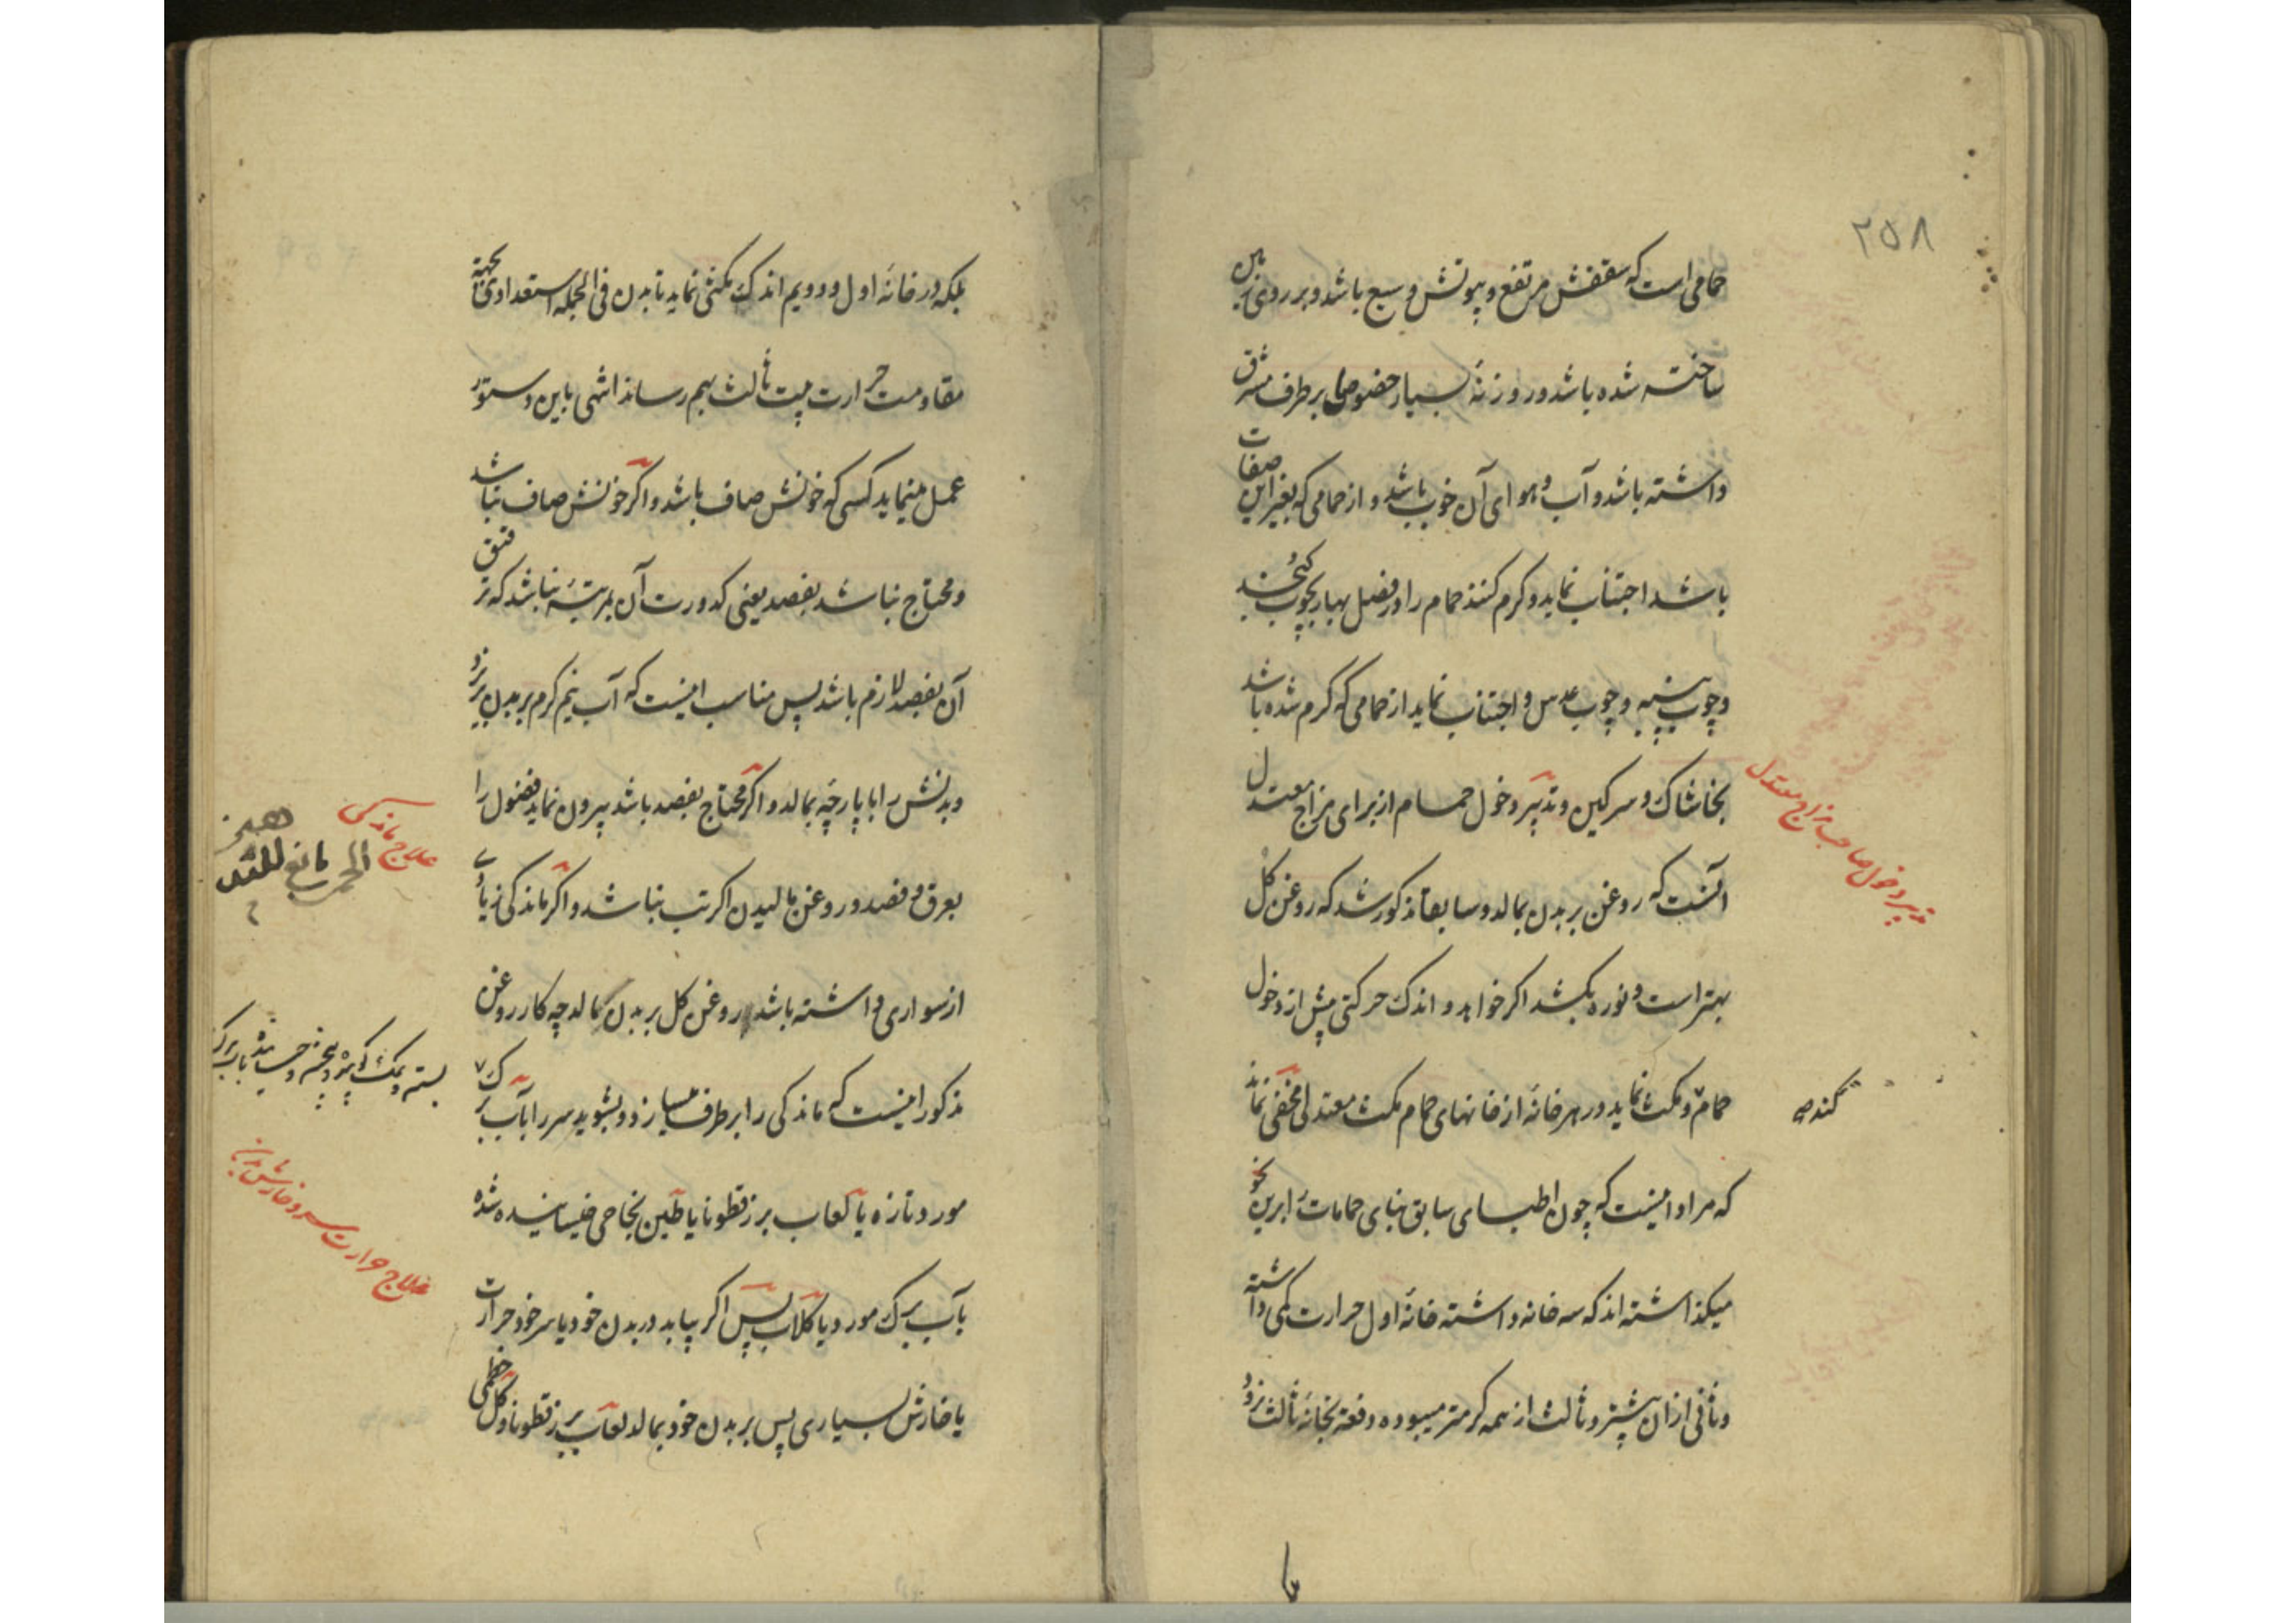 ۲۵۸
حمامی است که سقفش مرتفع و پیوتش وسیع باشد و بر روی زمین
ساخته شده باشد و روزنهٔ بسیار خصوصا بر طرف مشرق
داشته باشد و آب و هوای آن خوب باشد و از حمامی که بغیر این صفات
باشد اجتناب نماید و کرم کنند حمام را در فصل بهار بچوب کنجد
و چوب پنبه و چوب عدس و اجتناب نماید از حمامی که کرم شده باشد
بخاشاک و سرکین و تدبیر دخول حمام از برای مزاج معتدل
آنست که روغن بر بدن بمالد و سابقا مذکور شد که روغن کل
بهتر است و نوره بکشد اکر خواهد و اندک حرکتی پیش از دخول
حمام و مکث نماید در هر خانهٔ از خانهای حمام مکث معتدلی مخفی نماند
که مراد اینست که چون اطبای سابق بنای حمامات را برین نحو
میکذاشته اند که سه خانه داشته خانهٔ اول حرارت کمی داشته
و ثانی از ان بیشتر و ثالث از همه کرمتر میبوده دفعة بخانهٔ ثالث نرود
تدبیر دخول صاحب مزاج معتدل
کنده
بلکه در خانهٔ اول و دویم اندک مکثی نماید تا بدن فی الجمله استعدادی بجهة
مقاومت حرارت بیت ثالث بهم رساند انتهی باین دستور
عمل مینماید کسی که خونش صاف باشد و اکر خونش صاف نباشد
و محتاج نباشد بفصد یعنی کدورت آن بمرتبهٔ نباشد که ترقیق
آن بفصد لازم باشد پس مناسب اینست که آب نیم کرم بر بدن بریزد
و بدنش را با پارچهٔ بمالد و اکر محتاج بفصد باشد بیرون نماید فضول را
بعرق و فصد و روغن مالیدن اکر تب نباشد و اکر ماندکی زیادی
از سواری داشته باشد روغن کل بر بدن بمالد چه کار روغن
مذکور اینست که ماندکی را بر طرف میسازد و بشوید سر را بآب برک
مورد تازه یا لعاب بزرقطونا یا طین بخاحی خیسانیده شده
بآب برک مورد یا کلاب پس اکر بیابد در بدن خود یا سر خود حرارت
یا خارش بسیاری پس بر بدن خود بمالد لعاب بزرقطونا و کل خطمی
علاج ماندکی
علاج حرارت سر و خارش بدن